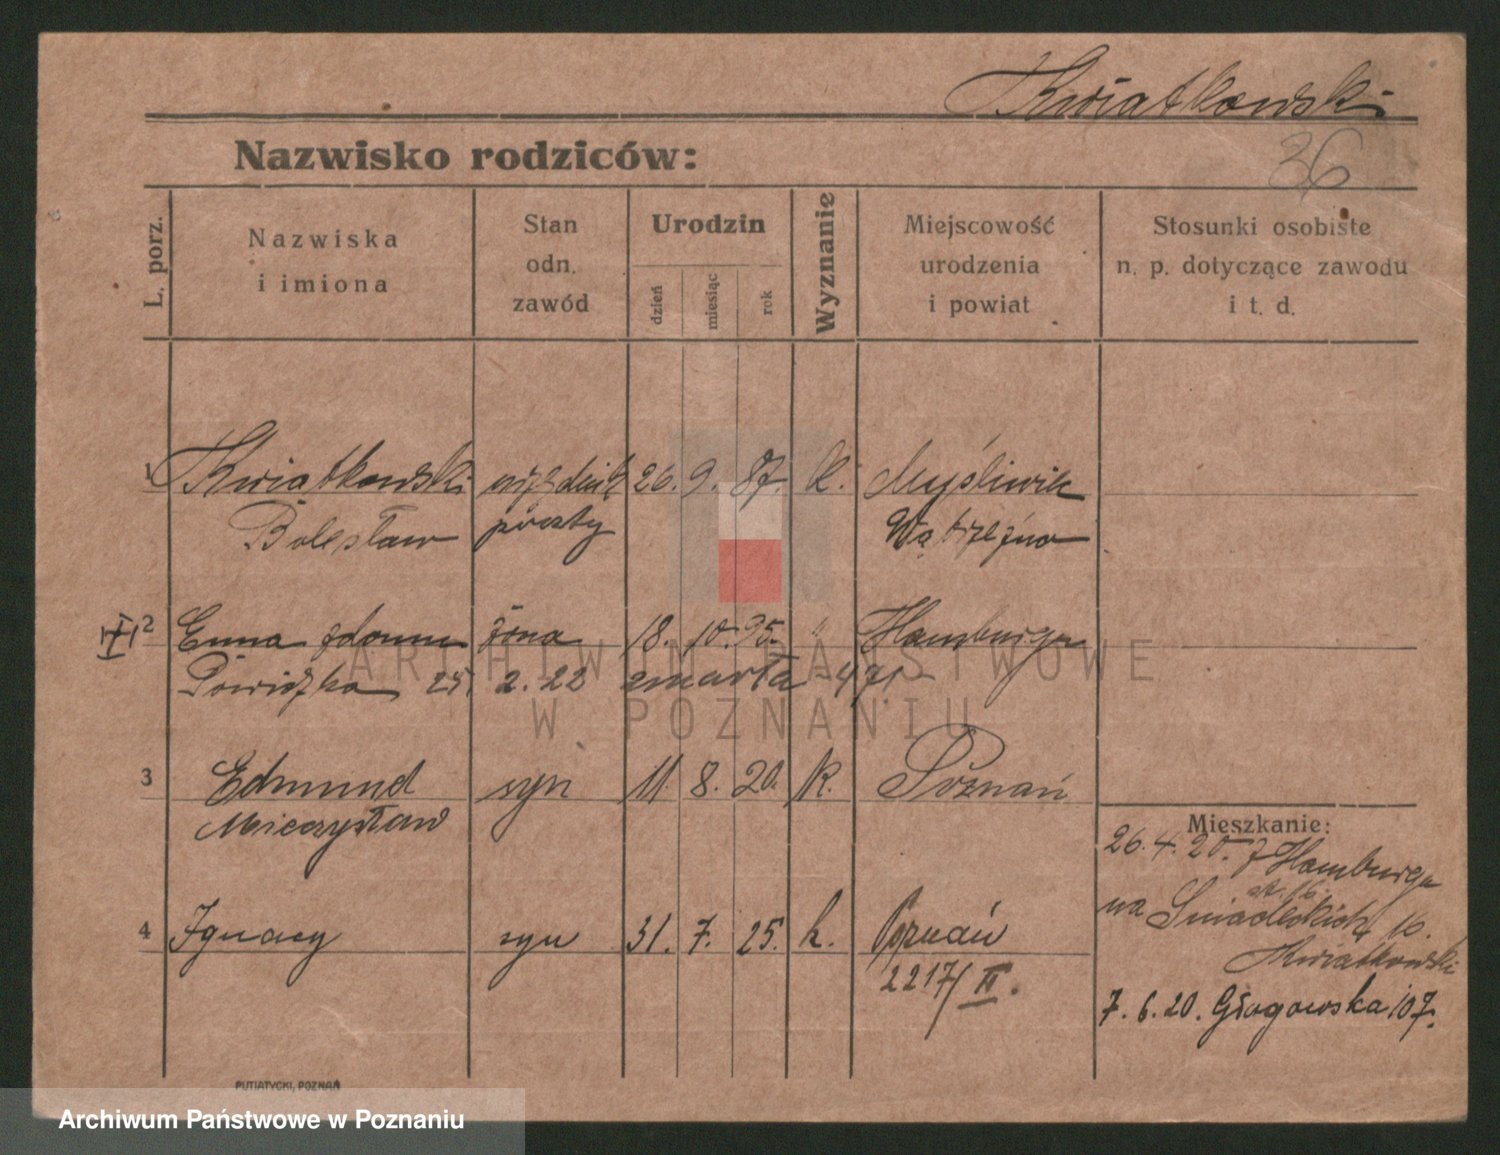 Kwiatkowski
36
Nazwisko rodziców:
L. porz.
Nazwiska
i imiona
Stan
odn.
zawód
Urodzin
dzień
miesiąc
rok
Wyznanie
Miejscowość
urodzenia
i powiat
Stosunki osobiste
n. p. dotyczące zawodu
i t. d.
1 Kwiatkowski 26. 9. 87. k. Myśliwiec
Bolesław poczty Wąbrzeźno
2 Emma z domu żona 18. 10. 95. " Hamburga
25. 2. 22 zmarła 471
3 Edmund syn 11. 8. 20. k. Poznań
Mieczysław
4 Ignacy syn 31. 7. 25. k. Poznań
2217/II.
Mieszkanie:
26. 4. 20. z Hamburga
na Śniadeckich 16.
Kwiatkowski
7. 6. 20. Głogowska 107.
ARCHIWUM PAŃSTWOWE
W POZNANIU
PUTIATYCKI, POZNAŃ
Archiwum Państwowe w Poznaniu